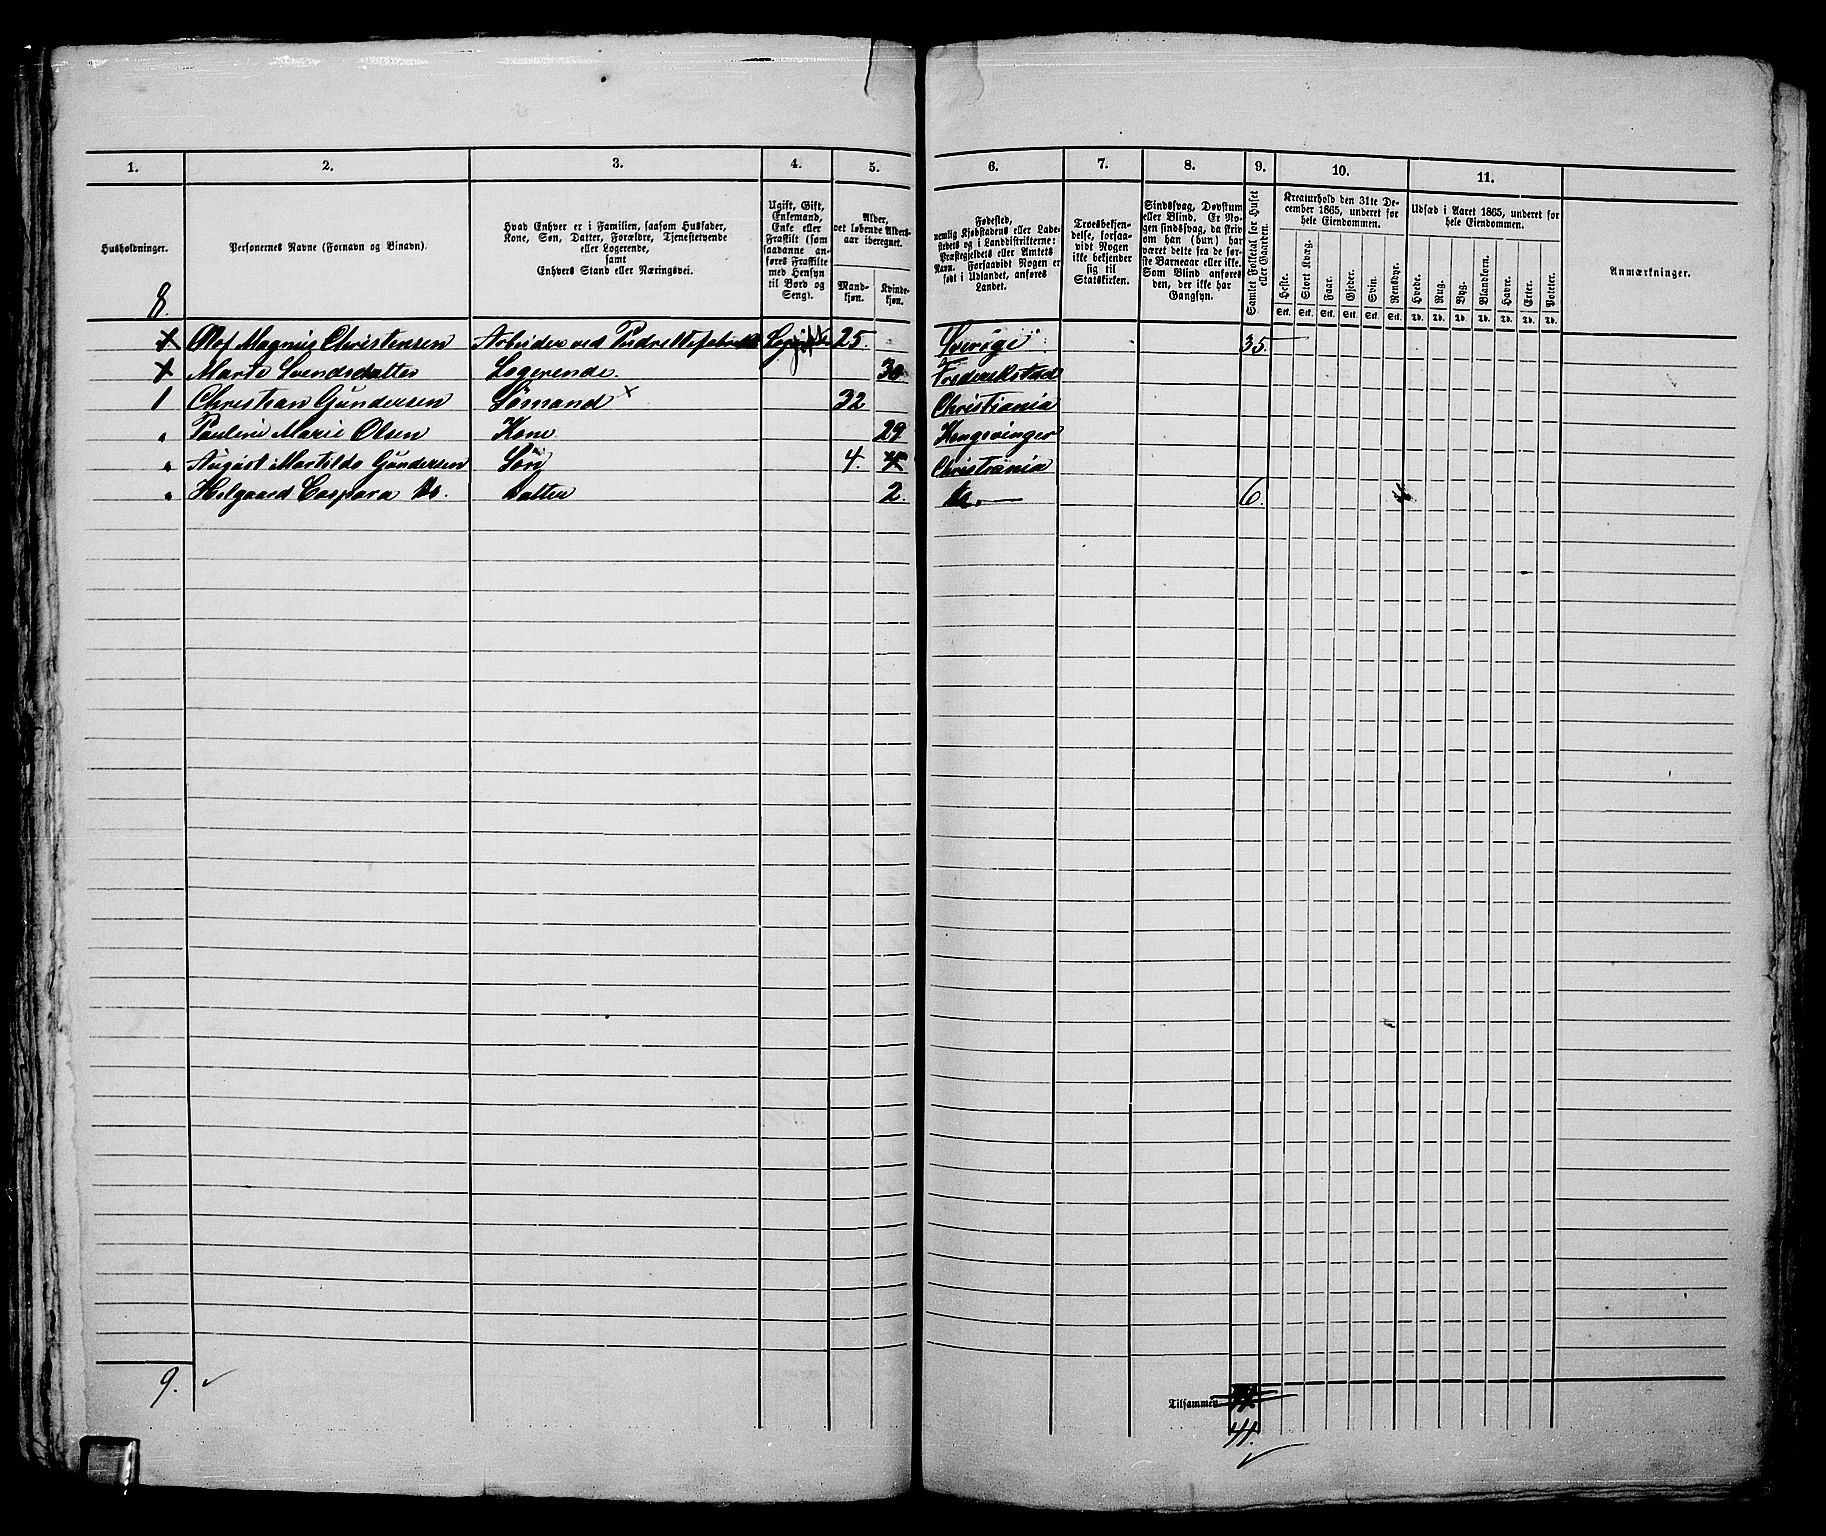 1. 2. 3. 4. 5. 6. 7. 8. 9. 10. 11.
Husholdninger.
Personernes Navne (Fornavn og Binavn).
Hvad Enhver er i Familien, saasom Husfader,
Kone, Søn, Datter, Forældre, Tjenestetyende
eller Logerende,
samt
Enhvers Stand eller Næringsvei.
Ugift, Gift,
Enkemand,
Enke eller
Fraskilt (som
saadanne an-
føres Fraskilte
med Hensyn
til Bord og
Seng).
Alder,
det løbende Alders-
aar iberegnet.
Mand-
kjøn.
Kvinde-
kjøn.
Fødested,
nemlig Kjøbstadens eller Lade-
stedets og i Landdistrikterne:
Præstegjeldets eller Amtets
Navn. Forsaavidt Nogen er
født i Udlandet, anføres
Landet.
Troesbekjen-
delse, forsaa-
vidt Nogen
ikke bekjender
sig til
Statskirken.
Sindssvag, Døvstum
eller Blind. Er No-
gen sindssvag, da skriv
om han (hun) har
været dette fra de før-
ste Barneaar eller ikke.
Som Blind anføres
den, der ikke har
Gangsyn.
Samlet Folketal for Huset
eller Gaarden.
Kreaturhold den 31te De-
cember 1865, underet for
hele Eiendommen.
Heste. Stort Kvæg. Faar. Gjeder. Svin. Rensdyr.
Stk. Stk. Stk. Stk. Stk. Stk.
Udsæd i Aaret 1865, underet for
hele Eiendommen.
Hvede. Rug. Byg. Blandkorn. Havre. Erter. Poteter.
Td. Td. Td. Td. Td. Td. Td.
Anmærkninger.
8.
Olof Magnus Christensen Arbeider ved 25. Sverige 35.
Marte Svendsdatter Logerende. 30 Frederikstad
1 Christian Gundersen Sømand × 32 Christiania
" Pauline Marie Olsen Kone 29 Kongsvinger
" August Martilde Gundersen Søn 4. Christiania
" Helgaard Caspara Do. Datter 2. Do. 6.
9. ✓
Tilsammen
41.
✓